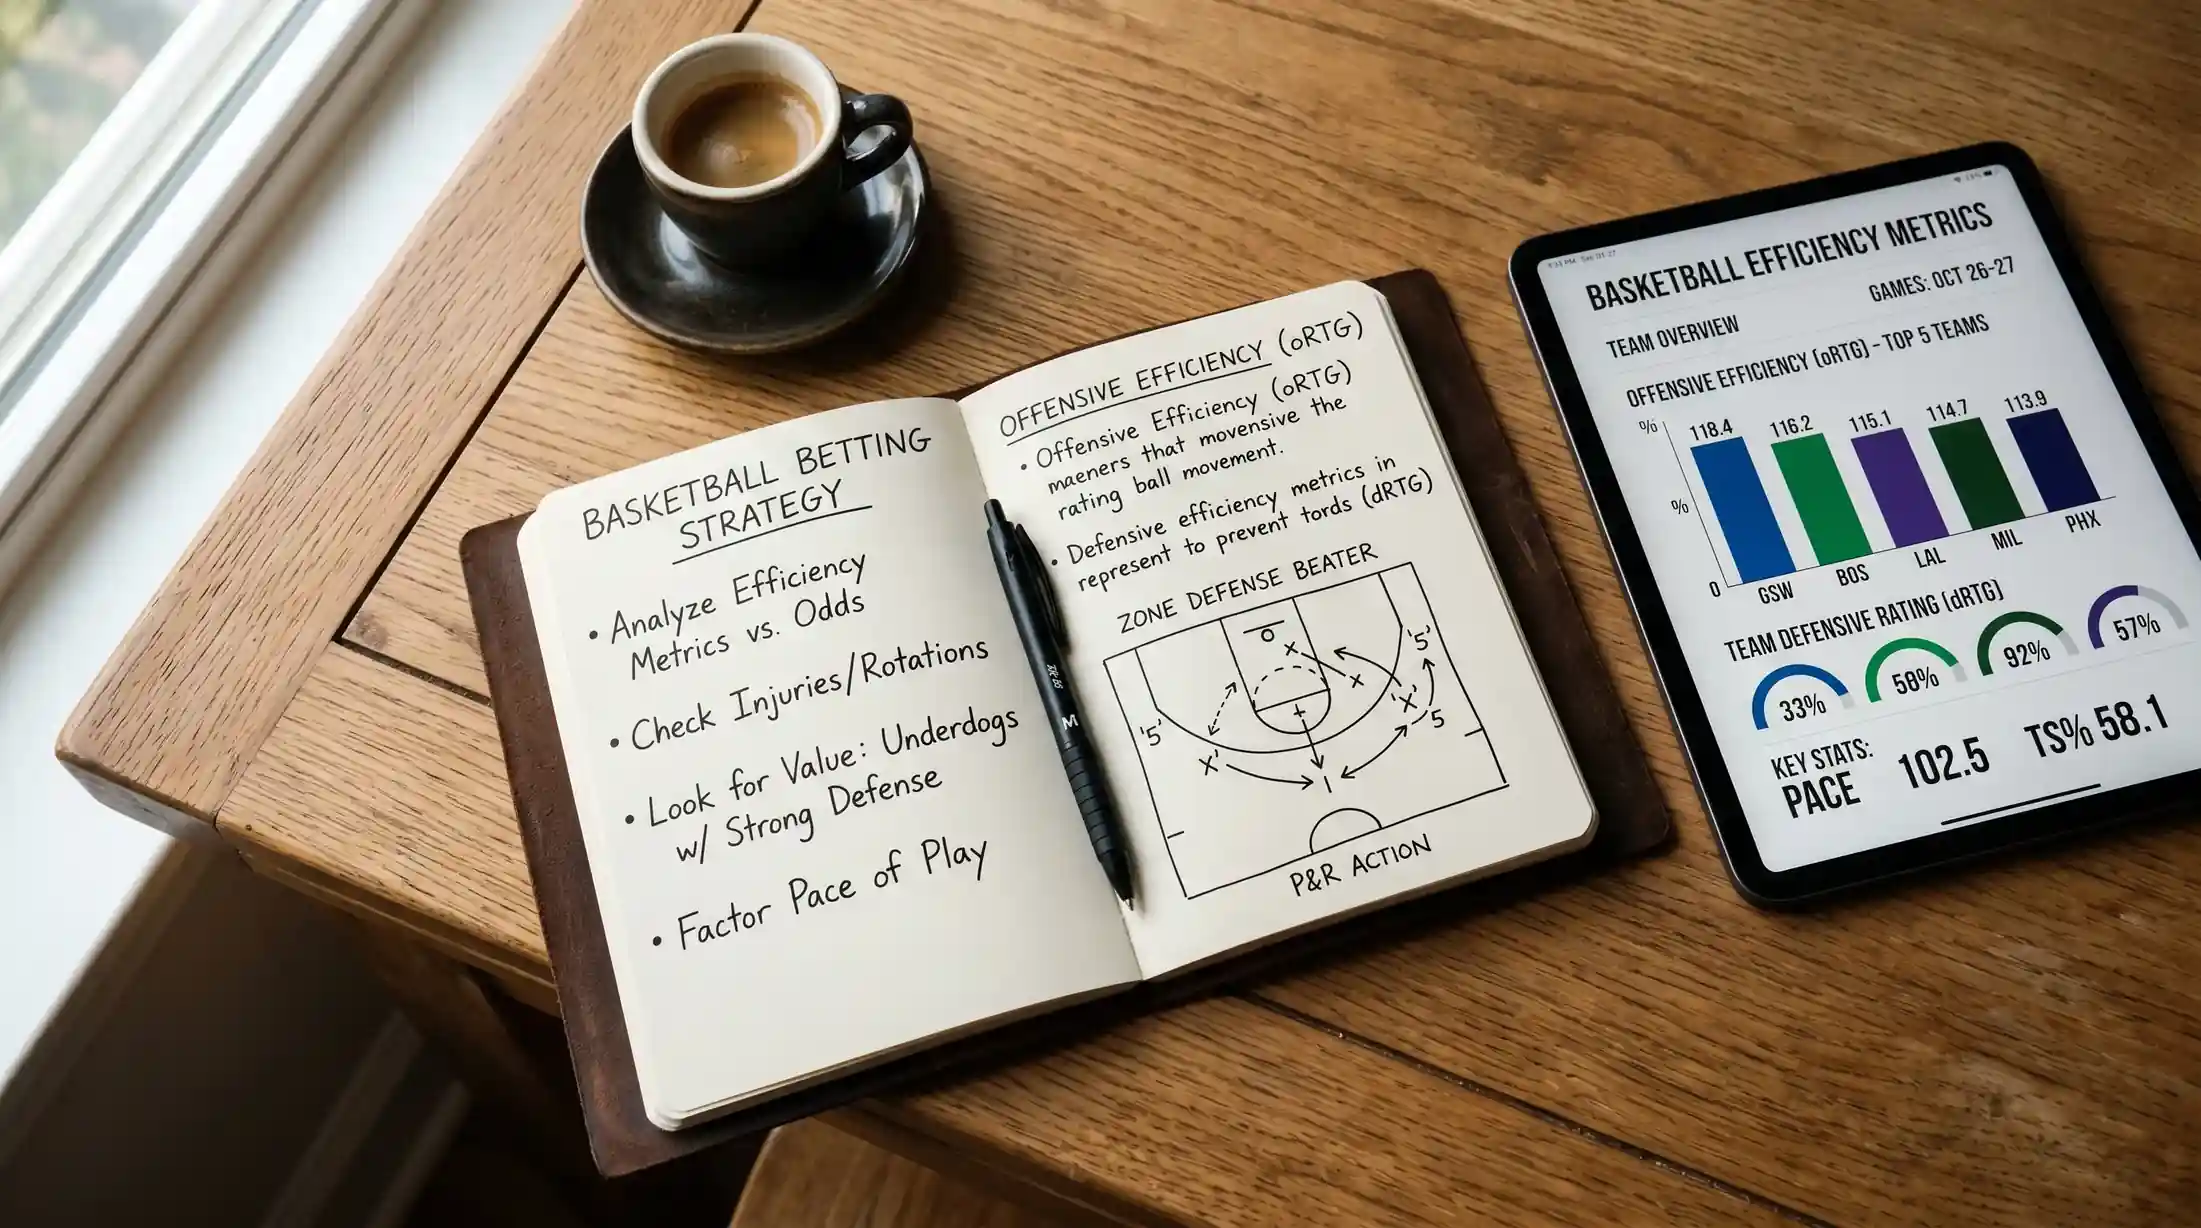 BASKETBALL BETTING
STRATEGY
• Analyze Efficiency
Metrics vs. Odds
• Check Injuries/Rotations
• Look for Value: Underdogs
w/ Strong Defense
• Factor Pace of Play
OFFENSIVE EFFICIENCY (oRTG)
• Offensive Efficiency (oRTG)
maeners that movensive the
rating ball movement.
• Defensive efficiency metrics in
represent to prevent tords (dRTG)
ZONE DEFENSE BEATER
O
X
X
'5'
'X'
'5'
5
X'
1
P&R ACTION
M
BASKETBALL EFFICIENCY METRICS
GAMES: OCT 26-27
TEAM OVERVIEW
OFFENSIVE EFFICIENCY (oRTG) - TOP 5 TEAMS
%
118.4
116.2
115.1
114.7
113.9
%
0
GSW
BOS
LAL
MIL
PHX
TEAM DEFENSIVE RATING (dRTG)
33%
58%
92%
57%
KEY STATS:
PACE
102.5
TS% 58.1